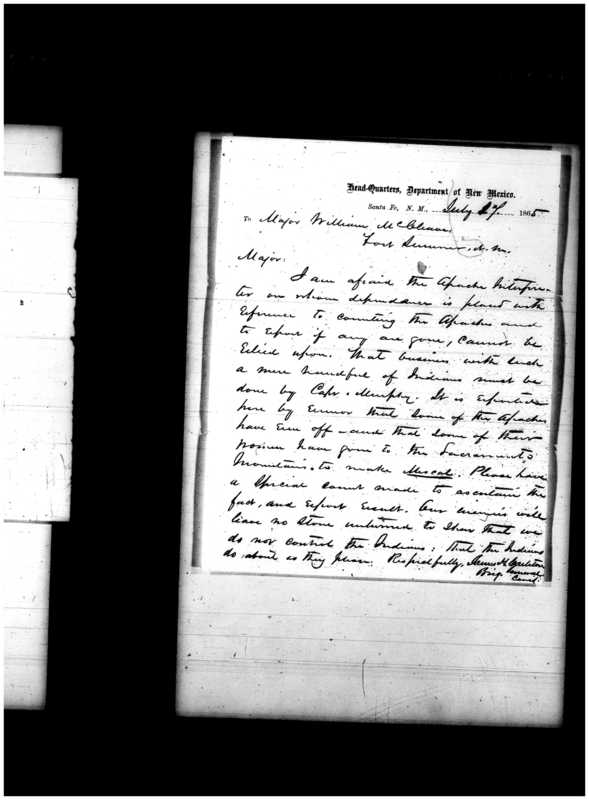 Head-Quarters, Department of New Mexico.
Santa Fe, N. M., July 27, 1865
To Major William McCleave
Fort Sumner, N. M.
Major:
I am afraid the Apache Interpre-
ter on whom dependance is placed with
reference to counting the Apaches and
to report if any are gone, cannot be
relied upon. That business with such
a mere handful of Indians must be
done by Capt. Murphy. It is reported
here by rumor that some of the Apaches
have run off—and that some of their
women have gone to the Sacramento
Mountains, to make Mescal. Please have
a special count made to ascertain the
fact, and report result. Our enemies will
leave no stone unturned to show that we
do not control the Indians; that the Indians
do about as they please. Respectfully, James H. Carleton
Brig. General
Comdg.